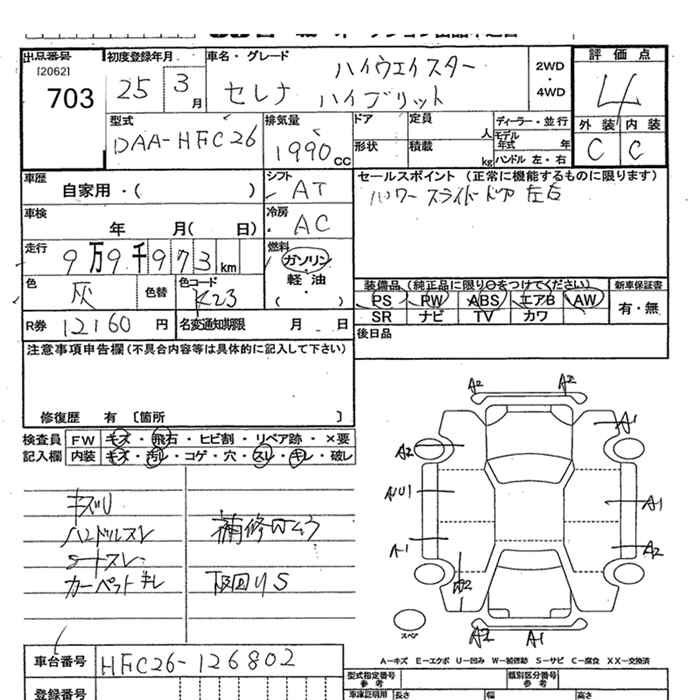 出品番号 初度登録年月 車名・グレード 評価点
[2062] ハイウェイスター 2WD
703 25 3月 セレナ ハイブリット ・4WD 4
型式 排気量 ドア 定員 人 ディーラー・並行 外装 内装
DAA-HFC26 1990cc 形状 積載 kg モデル年式 年 C C
ハンドル 左・右
車歴 シフト セールスポイント (正常に機能するものに限ります)
自家用・( ) AT パワースライドドア 左右
車検 冷房
年 月( 日) AC
走行 燃料
9万9千973km ガソリン
色 色替 色コード 軽油 装備品 (純正品に限り○をつけてください) 新車保証書
灰 K23 ( ) PS PW ABS エアB AW 有・無
SR ナビ TV カワ
R券 12160円 名変通知期限 月 日 後日品
注意事項申告欄(不具合内容等は具体的に記入して下さい)
修復歴 有 〔箇所 〕
検査員 FW キズ・飛石・ヒビ割・リペア跡・×要
記入欄 内装 キズ・汚レ・コゲ・穴・スレ・キレ・破レ
A2 A2
A1
A2
キズU AUU1 A1
ハンドルスレ 補修のこう
シートスレ A1 A2
カーペットキレ 下回りS W2
スペア
A2 A1
A-キズ E-エクボ U-凹み W-補修跡 S-サビ C-腐食 XX-交換済
車台番号 HFC26-126802
型式指定番号 参考 類別区分番号 参考
登録番号 車検証明用 長さ 幅 高さ